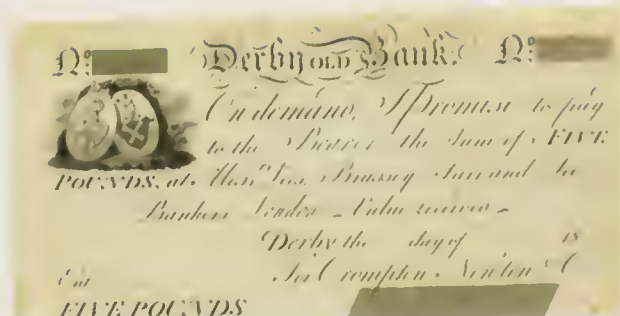 No: Derby OLD Bank. No:
On demand, I Promise to pay
to the Bearer the Sum of FIVE
POUNDS, at Brassey and
Bankers London Value received
Derby the day of 18
Ent. For Crompton, Newton &
FIVE POUNDS